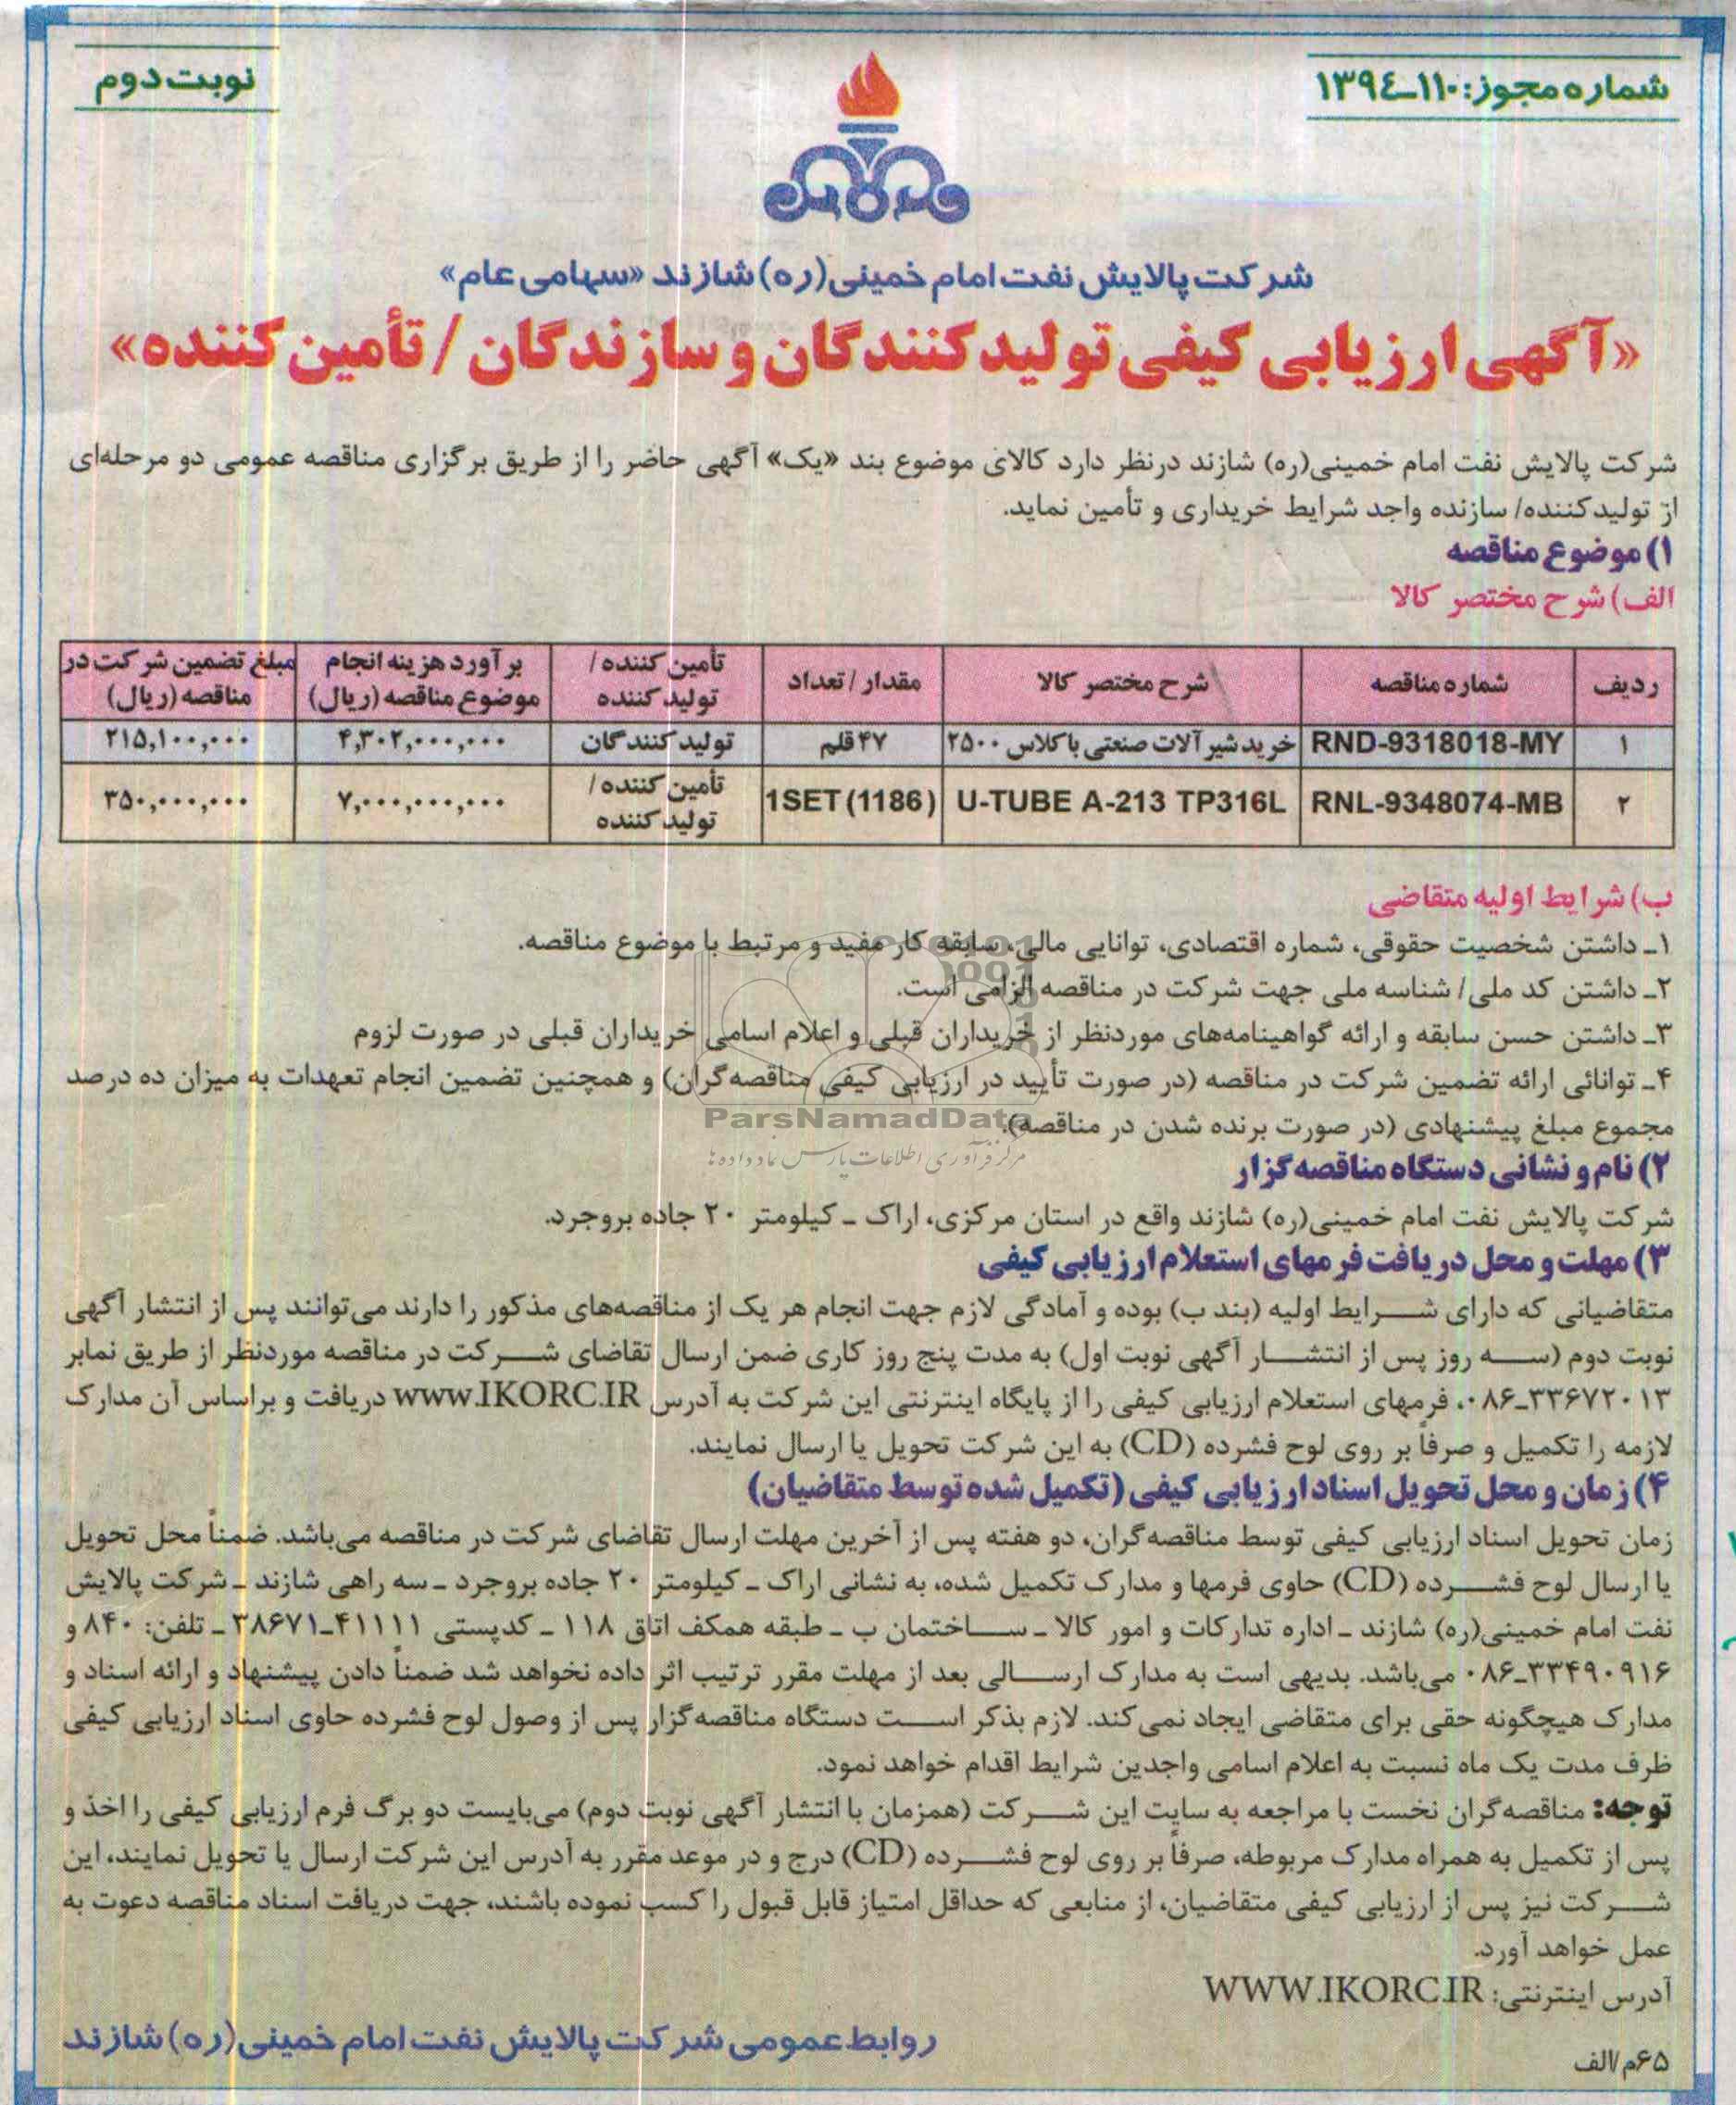 شماره مجوز: ۱۱۰ـ۱۳۹٤
نوبت دوم
شرکت پالایش نفت امام خمینی(ره) شازند «سهامی عام»
«آگهی ارزیابی کیفی تولیدکنندگان و سازندگان / تأمین کننده»
شرکت پالایش نفت امام خمینی(ره) شازند درنظر دارد کالای موضوع بند «یک» آگهی حاضر را از طریق برگزاری مناقصه عمومی دو مرحله‌ای
از تولیدکننده/ سازنده واجد شرایط خریداری و تأمین نماید.
۱) موضوع مناقصه
الف) شرح مختصر کالا
ردیف | شماره مناقصه | شرح مختصر کالا | مقدار / تعداد | تأمین کننده / تولید کننده | برآورد هزینه انجام موضوع مناقصه (ریال) | مبلغ تضمین شرکت در مناقصه (ریال)
۱ | RND-9318018-MY | خرید شیرآلات صنعتی با کلاس ۲۵۰۰ | ۴۷ قلم | تولید کنندگان | ۴,۳۰۲,۰۰۰,۰۰۰ | ۲۱۵,۱۰۰,۰۰۰
۲ | RNL-9348074-MB | U-TUBE A-213 TP316L | 1SET (1186) | تأمین کننده / تولید کننده | ۷,۰۰۰,۰۰۰,۰۰۰ | ۳۵۰,۰۰۰,۰۰۰
ب) شرایط اولیه متقاضی
۱ـ داشتن شخصیت حقوقی، شماره اقتصادی، توانایی مالی، سابقه کار مفید و مرتبط با موضوع مناقصه.
۲ـ داشتن کد ملی/ شناسه ملی جهت شرکت در مناقصه الزامی است.
۳ـ داشتن حسن سابقه و ارائه گواهینامه‌های موردنظر از خریداران قبلی و اعلام اسامی خریداران قبلی در صورت لزوم
۴ـ توانائی ارائه تضمین شرکت در مناقصه (در صورت تأیید در ارزیابی کیفی مناقصه‌گران) و همچنین تضمین انجام تعهدات به میزان ده درصد
مجموع مبلغ پیشنهادی (در صورت برنده شدن در مناقصه).
ParsNamadData
مرکز فرآوری اطلاعات پارس نماد داده ها
۲) نام و نشانی دستگاه مناقصه گزار
شرکت پالایش نفت امام خمینی(ره) شازند واقع در استان مرکزی، اراک ـ کیلومتر ۲۰ جاده بروجرد.
۳) مهلت و محل دریافت فرمهای استعلام ارزیابی کیفی
متقاضیانی که دارای شرایط اولیه (بند ب) بوده و آمادگی لازم جهت انجام هر یک از مناقصه‌های مذکور را دارند می‌توانند پس از انتشار آگهی
نوبت دوم (سه روز پس از انتشار آگهی نوبت اول) به مدت پنج روز کاری ضمن ارسال تقاضای شرکت در مناقصه موردنظر از طریق نمابر
۳۳۶۷۲۰۱۳ـ۰۸۶، فرمهای استعلام ارزیابی کیفی را از پایگاه اینترنتی این شرکت به آدرس www.IKORC.IR دریافت و براساس آن مدارک
لازمه را تکمیل و صرفاً بر روی لوح فشرده (CD) به این شرکت تحویل یا ارسال نمایند.
۴) زمان و محل تحویل اسناد ارزیابی کیفی (تکمیل شده توسط متقاضیان)
زمان تحویل اسناد ارزیابی کیفی توسط مناقصه‌گران، دو هفته پس از آخرین مهلت ارسال تقاضای شرکت در مناقصه می‌باشد. ضمناً محل تحویل
یا ارسال لوح فشرده (CD) حاوی فرمها و مدارک تکمیل شده، به نشانی اراک ـ کیلومتر ۲۰ جاده بروجرد ـ سه راهی شازند ـ شرکت پالایش
نفت امام خمینی(ره) شازند ـ اداره تدارکات و امور کالا ـ ساختمان ب ـ طبقه همکف اتاق ۱۱۸ ـ کدپستی ۴۱۱۱۱ـ۳۸۶۷۱ ـ تلفن: ۸۴۰ و
۳۳۴۹۰۹۱۶ـ۰۸۶ می‌باشد. بدیهی است به مدارک ارسالی بعد از مهلت مقرر ترتیب اثر داده نخواهد شد ضمناً دادن پیشنهاد و ارائه اسناد و
مدارک هیچگونه حقی برای متقاضی ایجاد نمی‌کند. لازم بذکر است دستگاه مناقصه‌گزار پس از وصول لوح فشرده حاوی اسناد ارزیابی کیفی
ظرف مدت یک ماه نسبت به اعلام اسامی واجدین شرایط اقدام خواهد نمود.
توجه: مناقصه‌گران نخست با مراجعه به سایت این شرکت (همزمان با انتشار آگهی نوبت دوم) می‌بایست دو برگ فرم ارزیابی کیفی را اخذ و
پس از تکمیل به همراه مدارک مربوطه، صرفاً بر روی لوح فشرده (CD) درج و در موعد مقرر به آدرس این شرکت ارسال یا تحویل نمایند، این
شرکت نیز پس از ارزیابی کیفی متقاضیان، از منابعی که حداقل امتیاز قابل قبول را کسب نموده باشند، جهت دریافت اسناد مناقصه دعوت به
عمل خواهد آورد.
آدرس اینترنتی: WWW.IKORC.IR
روابط عمومی شرکت پالایش نفت امام خمینی(ره) شازند
۶۵م/الف